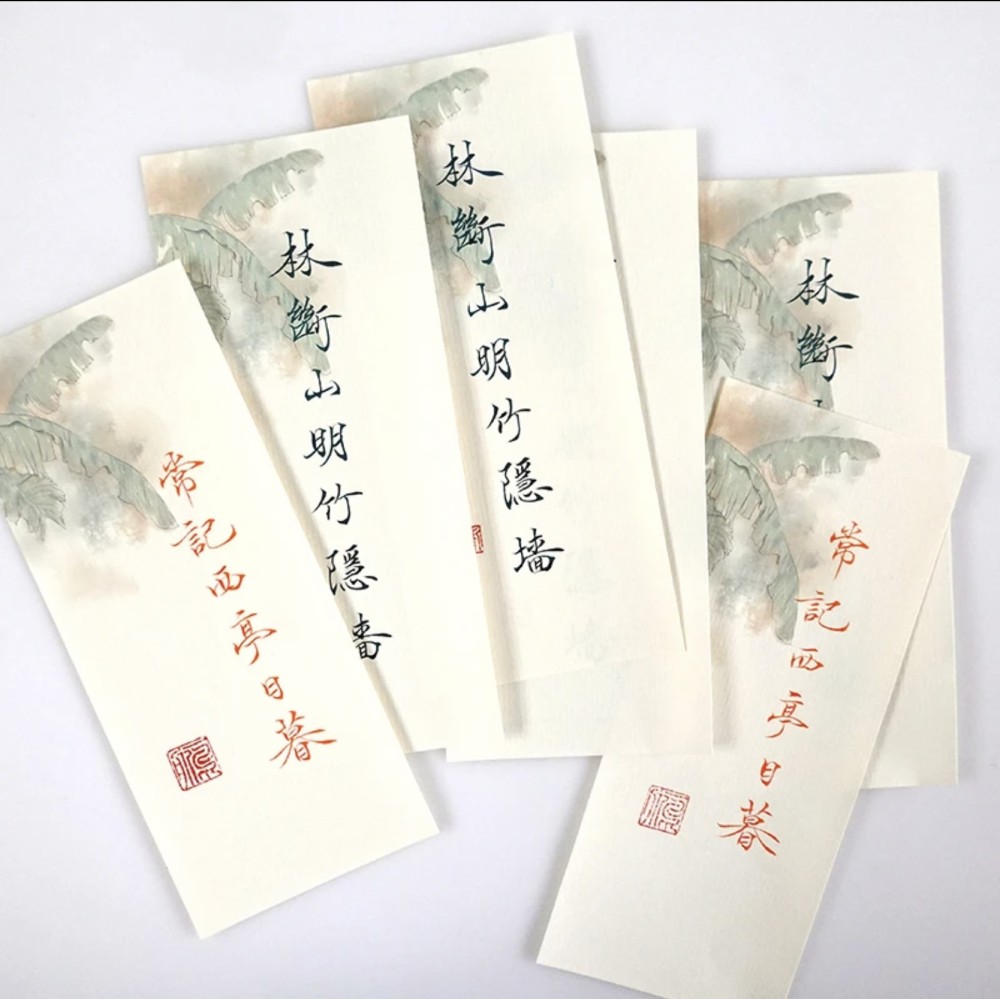 常記西亭日暮
林斷山明竹隱墻
林斷山明竹隱墻
林斷
常記西亭日暮